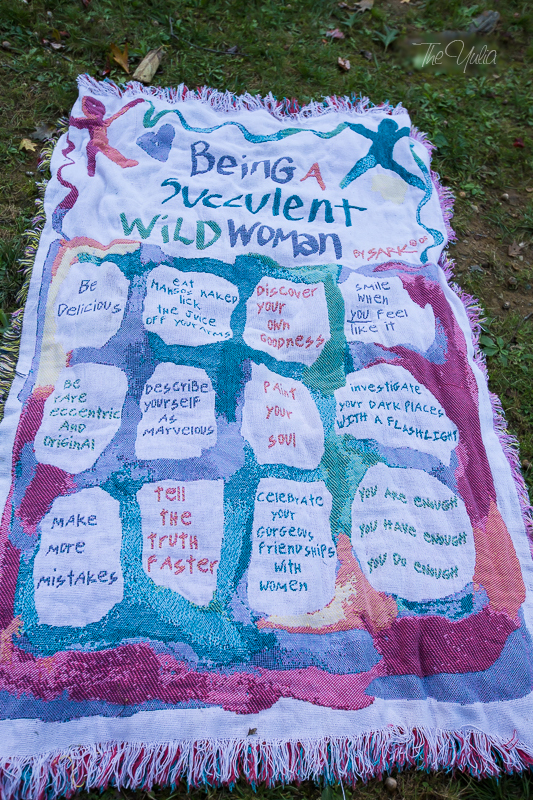 The Yulia
Being A
Succulent
Wild Woman
By SARK
Be
Delicious
eat
Mangos naked
lick
the juice
off your arms
Discover
your
own
goodness
smile
when
you feel
like it
Be
rare
eccentric
And
original
Describe
yourself
as
marvelous
Paint
your
soul
investigate
your Dark places
with a flashlight
Make
more
mistakes
tell
the
truth
faster
celebrate
your
gorgeous
friendships
with
women
You are enough
You have enough
You do enough